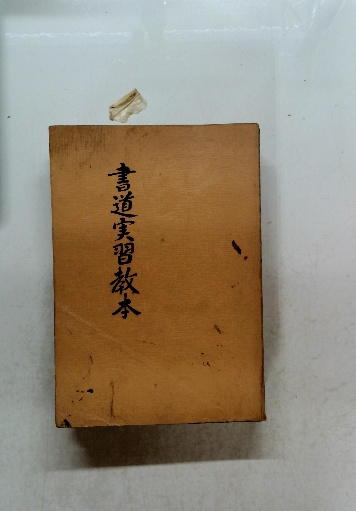 書道実習教本